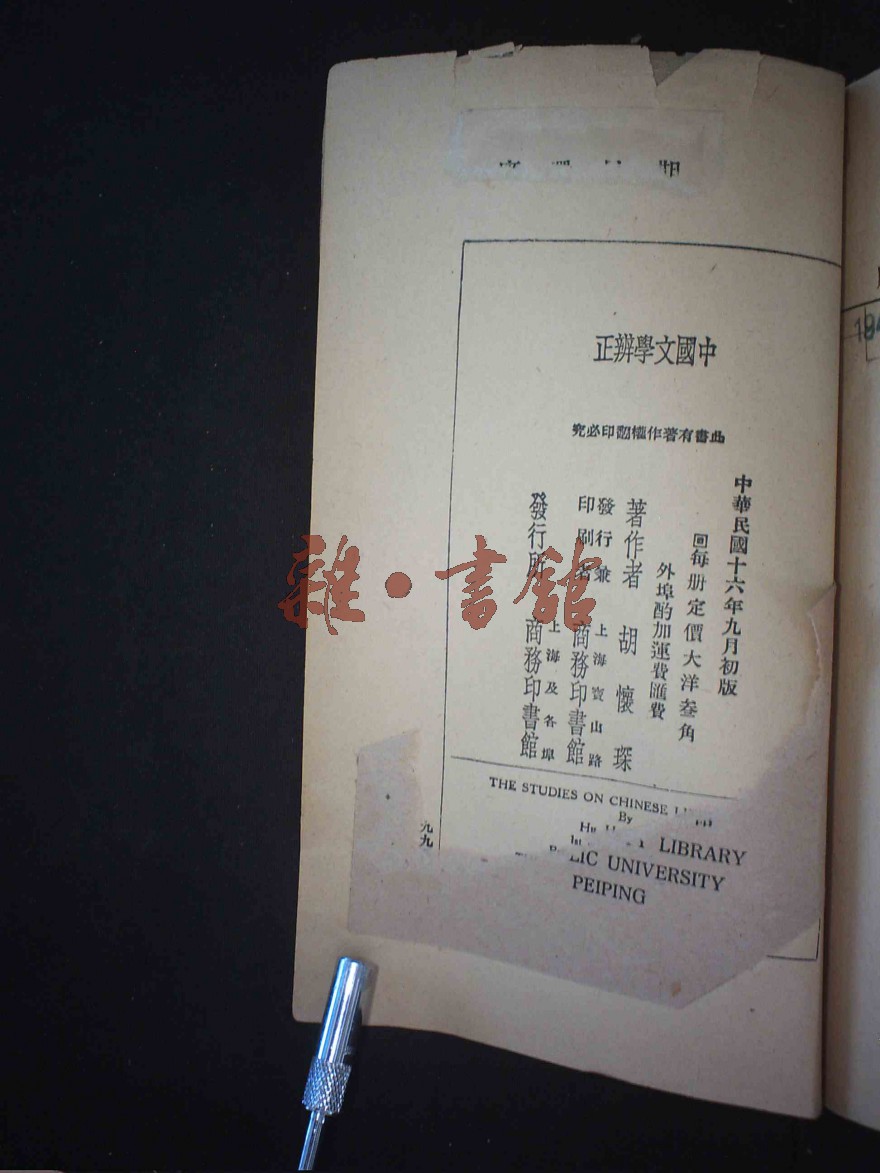 中國文學辨正
此書有著作權翻印必究
中華民國十六年九月初版
回每册定價大洋叁角
外埠酌加運費匯費
著作者 胡懷琛
發行兼 上海寶山路
印刷者 商務印書館
上海及各埠
發行所 商務印書館
雜·書館
THE STUDIES ON CHINESE
By
LIBRARY
LIC UNIVERSITY
PEIPING
九九
184